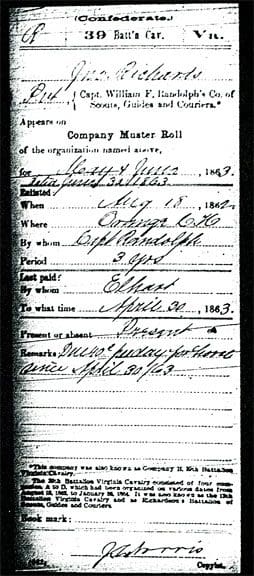 (Confederate.)
R 39 Batt'n Cav. Va.
Jno. Richards
Pvt, Capt. William F. Randolph's Co. of
Scouts, Guides and Couriers.*
Appears on
Company Muster Roll
of the organization named above,
for May & June, 1863.
dated June 30 1863
Enlisted:
When Aug 18, 1862
Where Orange C H
By whom Capt Randolph
Period 3 yrs
Last paid:
By whom Elhart
To what time April 30, 1863.
Present or absent Present
Remarks: per day for horse
since April 30/63
*This company was also known as Company B, 39th Battalion
Virginia Cavalry.
The 39th Battalion Virginia Cavalry consisted of four companies,
A to D, which had been organized on various dates from
August 18, 1862, to January 20, 1864. It was also known as the 13th
Battalion Virginia Cavalry and as Richardson's Battalion of
Scouts, Guides and Couriers.
Book mark:
(642)
Copyist.